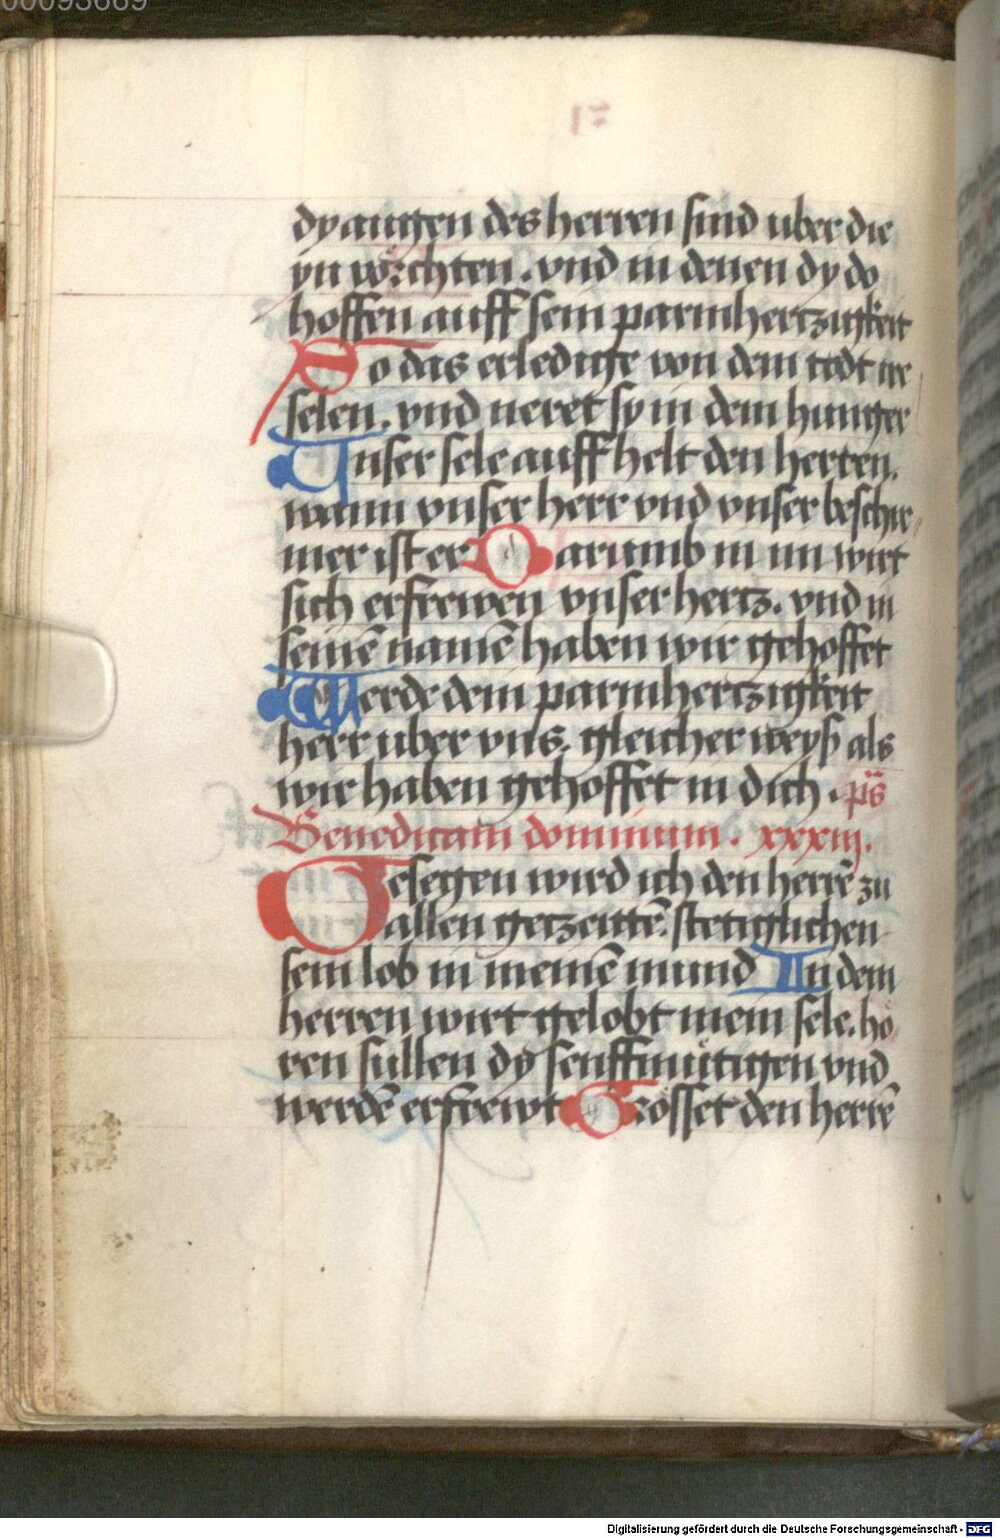 00093669
dy augen des herren sind uber die
yn vörchten . vnd in denen dy do
hoffen auff sein parmhertzigkeit
So das erledige von dem todt ire
selen . vnd neret sy in dem hunger
Unser sele auff helt den herren .
wann vnser herr vnd vnser beschir
mer ist er Darumb in im wirt
sich erfrewen vnser hertz . vnd in
seinē namē haben wir gehoffet
Werde dein parmhertzigkeit
herr uber vns . gleicher weyß als
wir haben gehoffet in dich . ps̄
Benedicam dominum . xxxiii .
Gesegen wird ich den herrē zu
allen getzeittē . stetiglichen
sein lob in meinē mund In dem
herren wirt gelobt mein sele . hö
ren sullen dy senfftmütigen vnd
werdē erfrewt Grösset den herrē
Digitalisierung gefördert durch die Deutsche Forschungsgemeinschaft - DFG